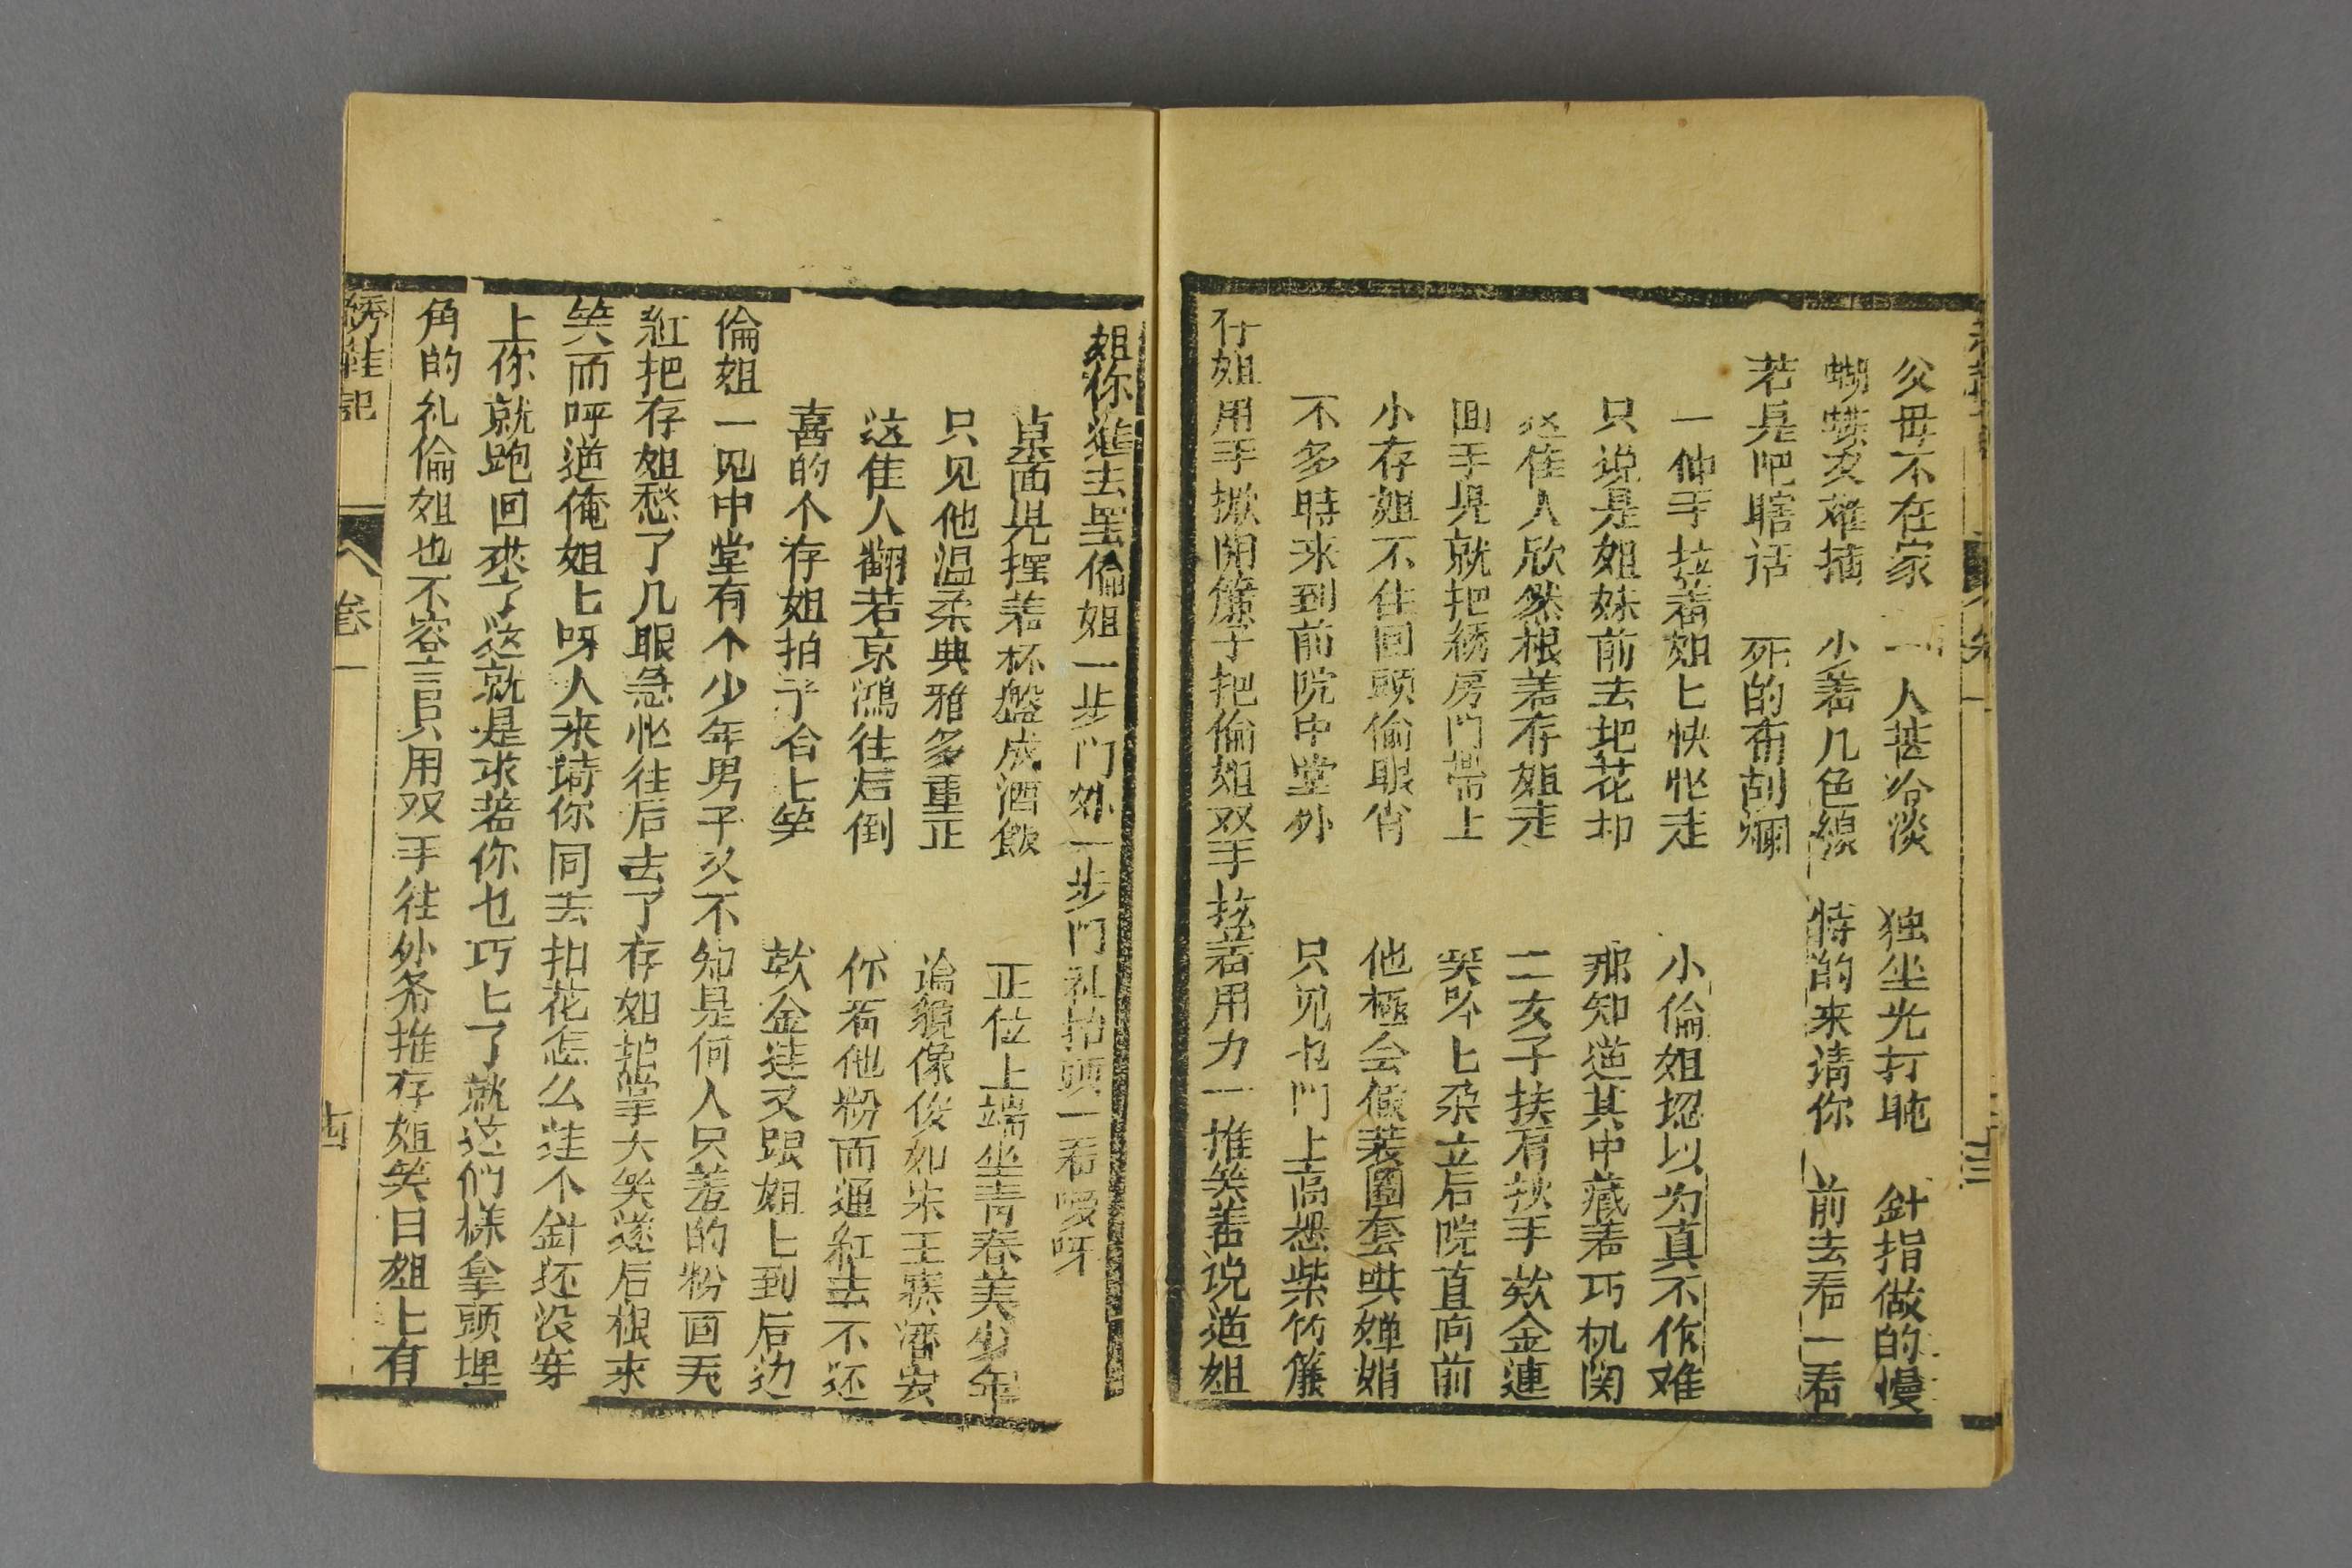 父母不在家 一人甚冷淡 独坐光打盹 針指做的慢
蝴蝶亥难描 小着几色線 特的来请你 前去看一看
若是吧瞎话 死的布刮爛
一伸手拉着姐匕快忙走 小倫姐認以为真不作难
只说是姐妹前去把花扣 那知道其中藏着巧机関
这佳人欣然根着存姐走 二女子扶肩挟手欸金連
回手児就把綉房門帶上 笑吟匕朶立后院直向前
小存姐不住回頭偷眼肯 他極会假装圈套哄婵娟
不多時来到前院中堂外 只见也門上高想柴竹簾
存姐用手掀開簾子把倫姐双手拉着用力一推笑着说道姐
姐你進去罢倫姐一步门外一步门礼抬頭一看嗳呀
桌面児摆着杯盤成酒飲 正位上端坐青春美少年
只见他温柔典雅多重正 论貌像俊如宋王赛潘安
这佳人翻若京鴻往后倒 你看他粉面通紅去不还
喜的个存姐拍手合匕笑 欸金莲又跟姐匕到后边
倫姐一见中堂有个少年男子久不知是何人只羞的粉面无
紅把存姐愁了几眼急忙往后去了存姐拍掌大笑遂后根来
笑而呼道俺姐匕呀人来埼你同去扣花怎么鞋不針还没穿
上你就跑回来了这就是求若你也巧匕了就这们樣拿頭埋
角的礼倫姐也不容言只用双手往外条推存姐笑曰姐匕有
綉鞋記 卷一